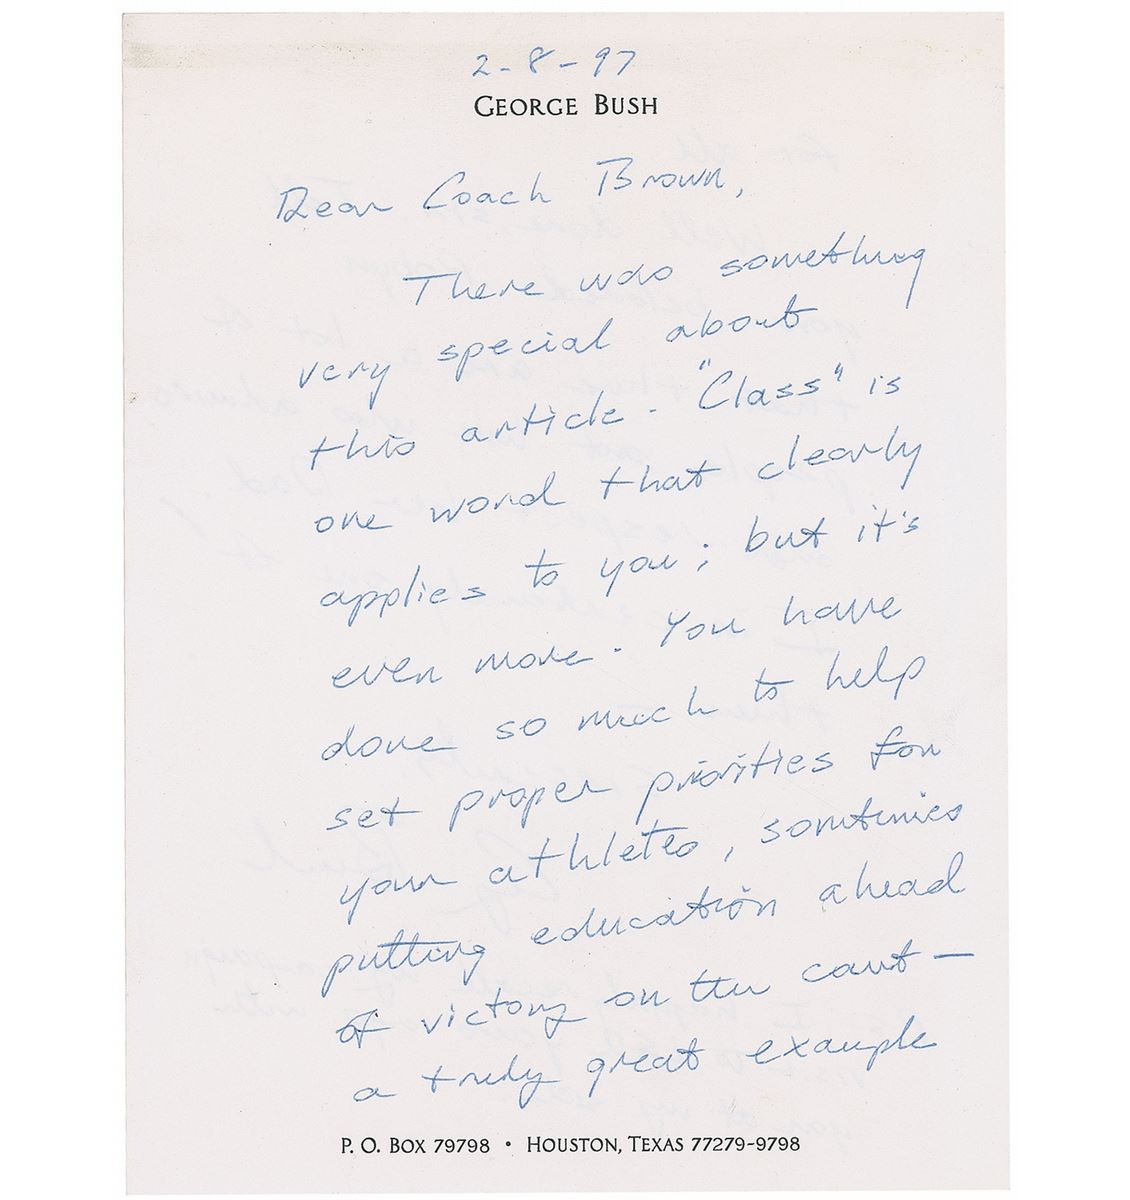 2-8-97
GEORGE BUSH
Dear Coach Brown,
There was something
very special about
this article. "Class" is
one word that clearly
applies to you; but it's
even more. You have
done so much to help
set proper priorities for
your athletes, sometimes
putting education ahead
of victory on the court —
a truly great example
P. O. BOX 79798 • HOUSTON, TEXAS 77279-9798